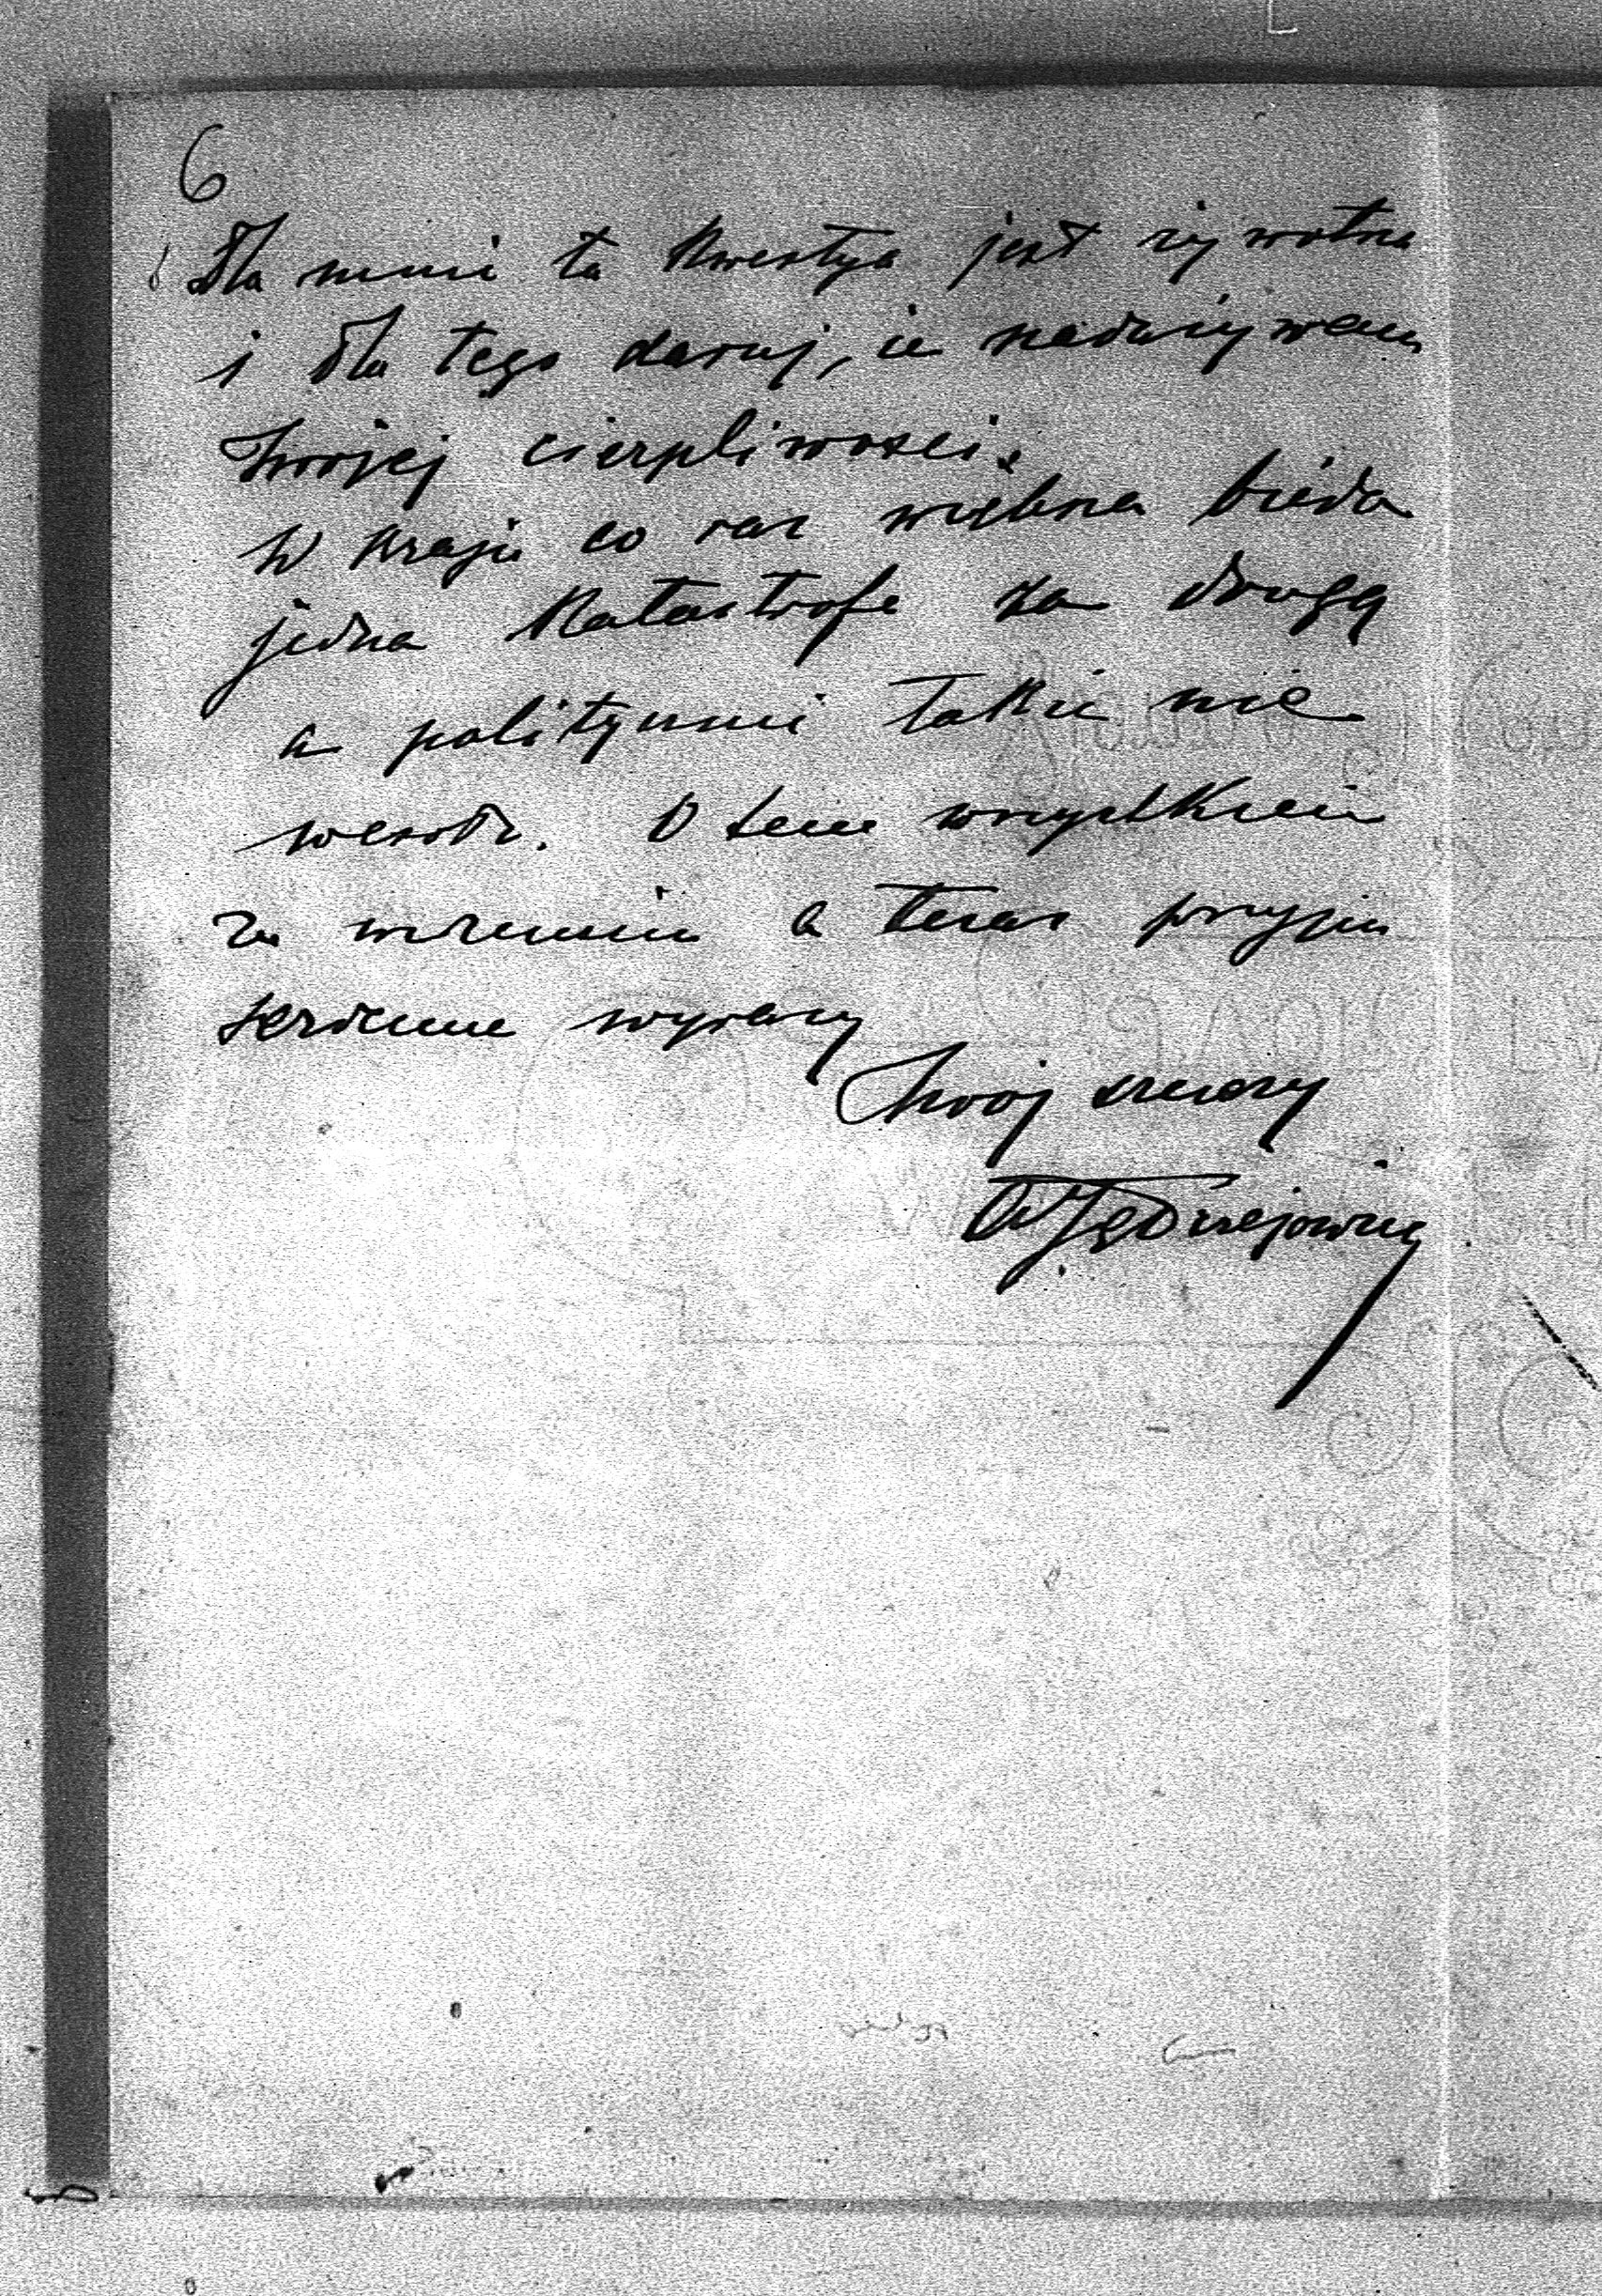 6
Dla mnie ta kwestya jest żywotna
i dla tego daruj, że nadużywam
Twojej cierpliwości.
W kraju co raz większa bieda
jedna katastrofa za drugą
a politycznie także nie
wesoło. O tem wszystkiem
we wrześniu a teraz przyjm
serdeczne wyrazy
Twój szczery
WJędrzejowicz